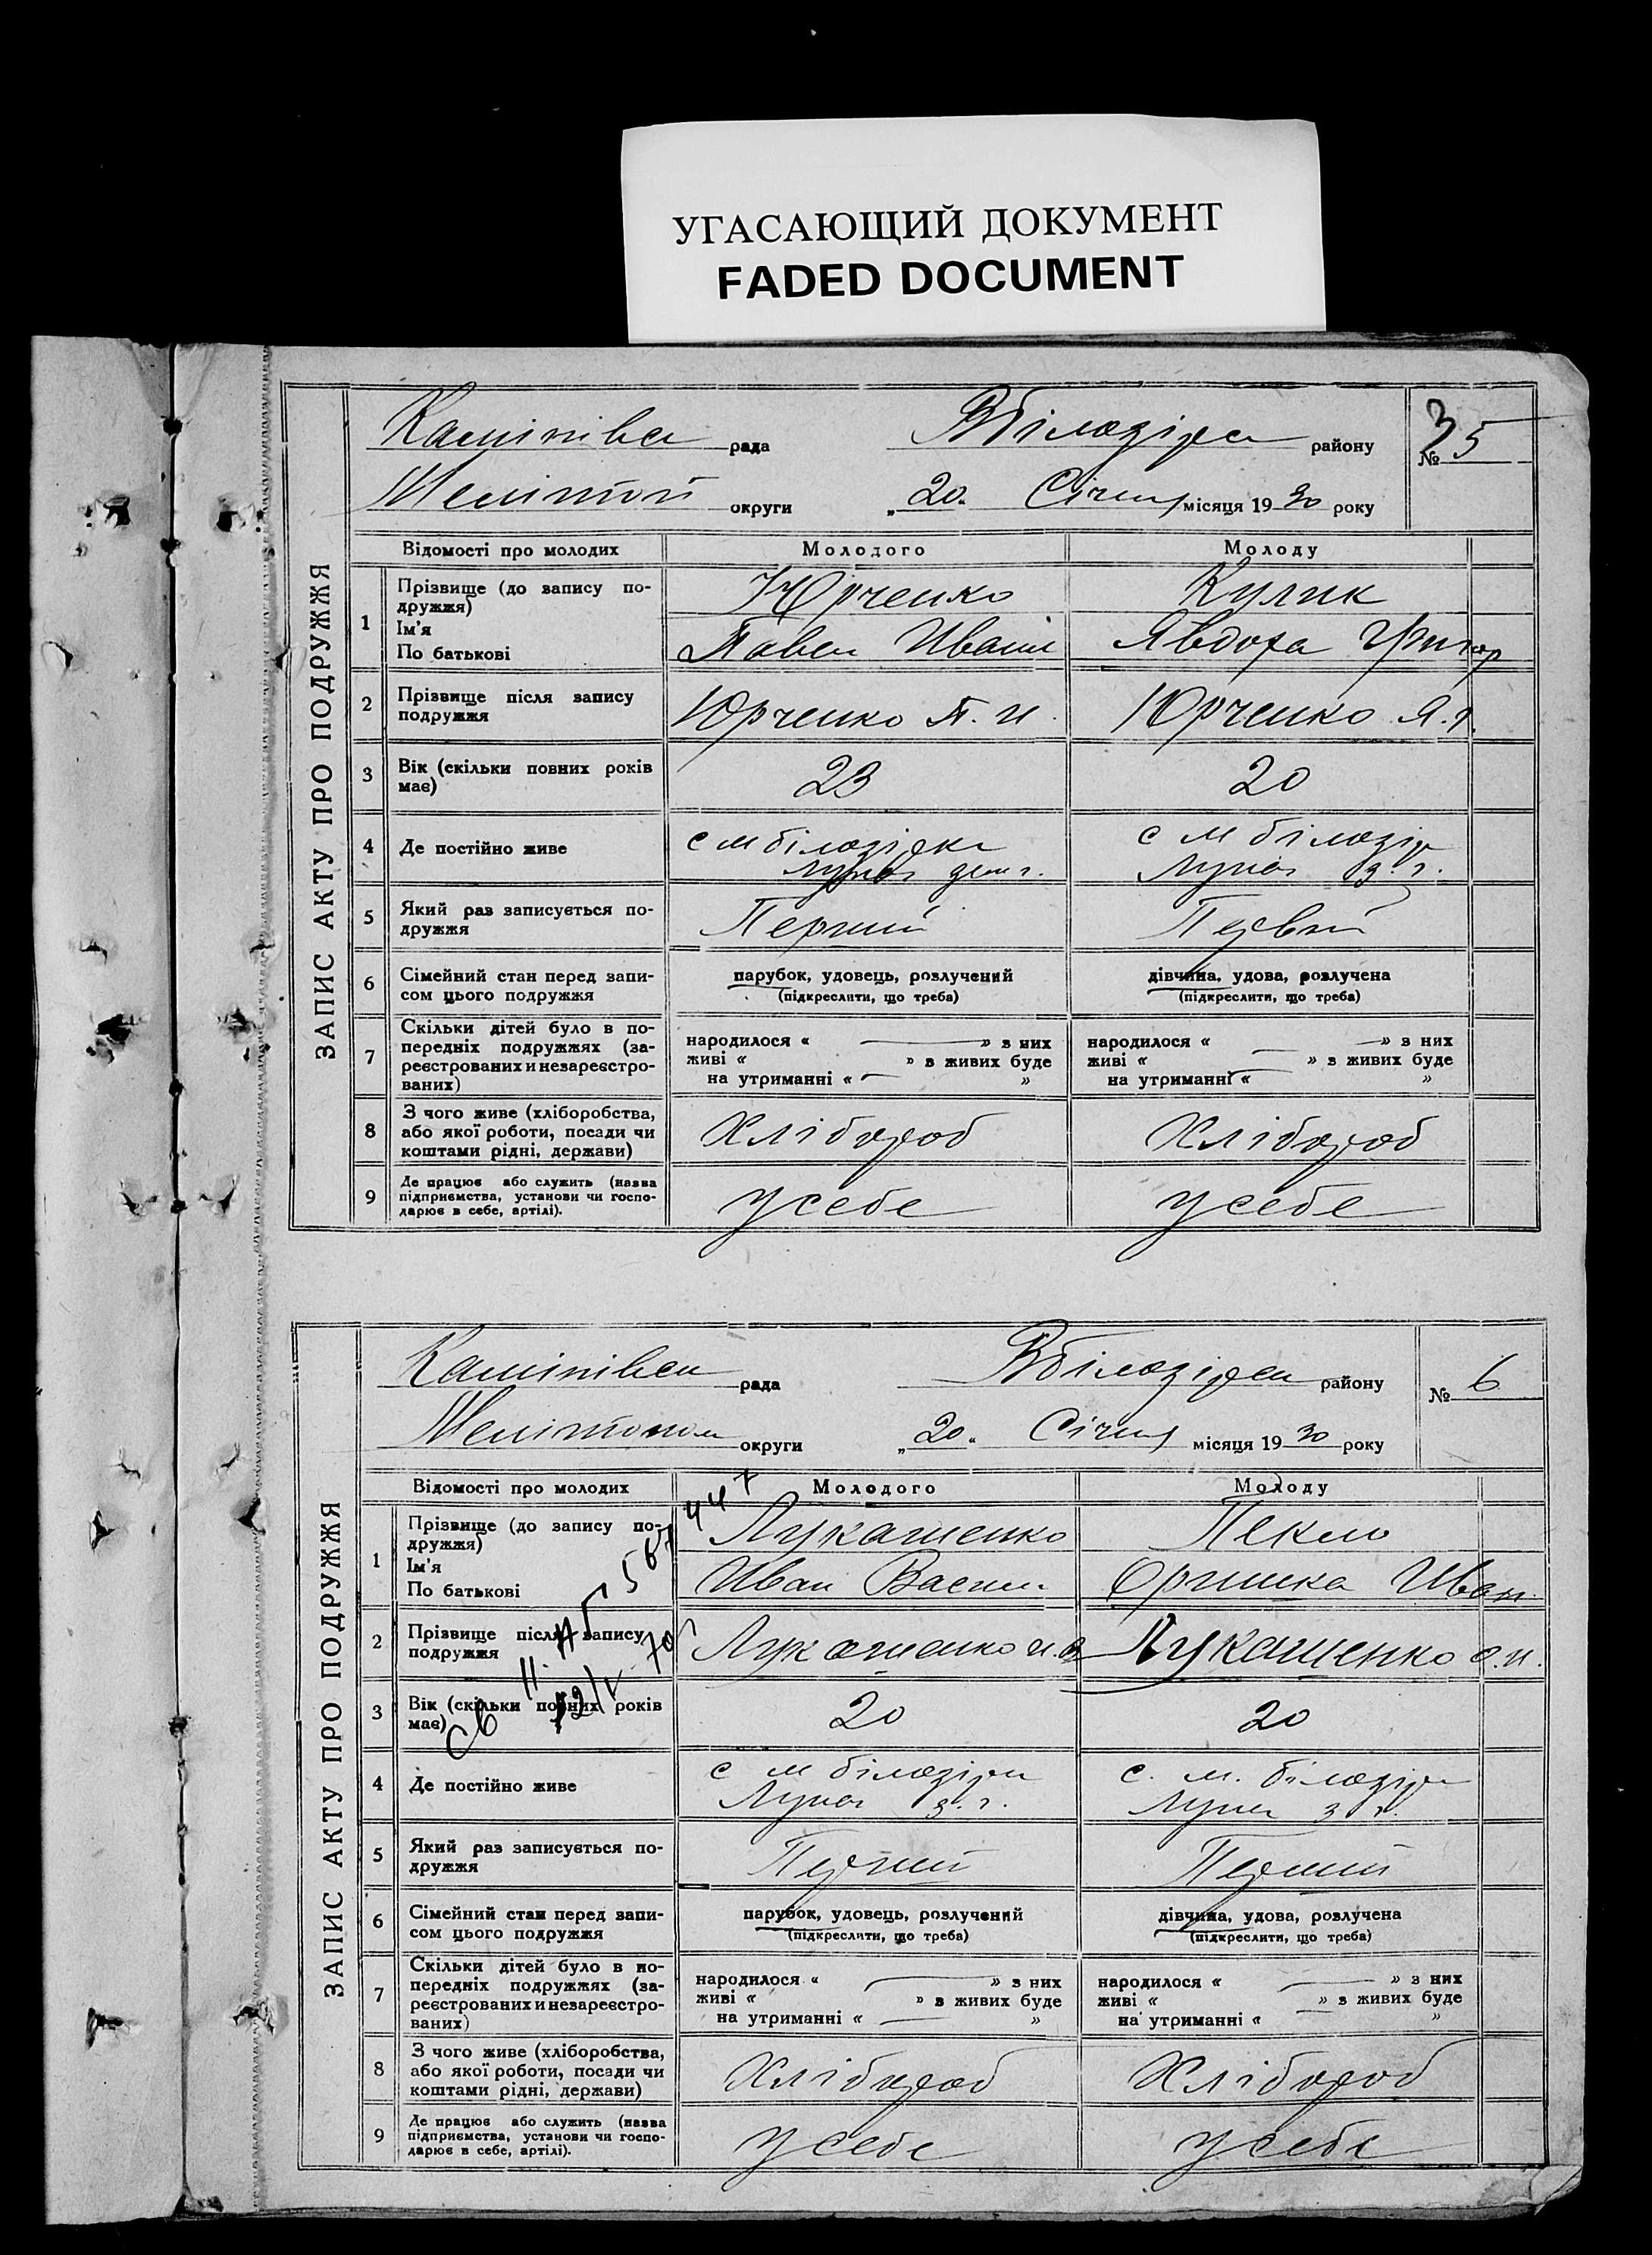 УГАСАЮЩИЙ ДОКУМЕНТ
FADED DOCUMENT
ЗАПИС АКТУ ПРО ПОДРУЖЖЯ
рада Вбілозірка району № 5
Меліто округи „20“ Січня місяця 1930 року
Відомості про молодих Молодого Молоду
1 Прізвище (до запису по-
дружжя)
Ім'я
По батькові
Юрченко Кулик
Павел Иван Явдоха Григор
2 Прізвище після запису
подружжя
Юрченко П. И. Юрченко Я. Г.
3 Вік (скільки повних років
має)
23 20
4 Де постійно живе
с м білозірка с м білозір
5 Який раз записується по-
дружжя
Перший Первий
6 Сімейний стан перед запи-
сом цього подружжя
парубок, удовець, розлучений дівчина, удова, розлучена
(підкреслити, що треба) (підкреслити, що треба)
7 Скільки дітей було в по-
передніх подружжях (за-
реєстрованих и незареєстро-
ваних)
народилося « — » з них народилося « — » з них
живі « » в живих буде живі « — » в живих буде
на утриманні « — » на утриманні « — »
8 З чого живе (хліборобства,
або якої роботи, посади чи
коштами рідні, держави)
Хлібороб Хлібороб
9 Де працює або служить (назва
підприємства, установи чи госпо-
дарює в себе, артілі).
у себе у себе
ЗАПИС АКТУ ПРО ПОДРУЖЖЯ
рада Вбілозірка району № 6
Мелітопол округи „20“ Січня місяця 1930 року
Відомості про молодих Молодого Молоду
1 Прізвище (до запису по-
дружжя)
Ім'я
По батькові
Лукашенко Пекло
Иван Васил Оришка Иван.
2 Прізвище після запису
подружжя
Лукашенко И. В Лукашенко О. И.
3 Вік (скільки повних років
має)
20 20
4 Де постійно живе
с м білозірки с. м. білозірк
5 Який раз записується по-
дружжя
Перший Перший
6 Сімейний стан перед запи-
сом цього подружжя
парубок, удовець, розлучений дівчина, удова, розлучена
(підкреслити, що треба) (підкреслити, що треба)
7 Скільки дітей було в по-
передніх подружжях (за-
реєстрованих и незареєстро-
ваних)
народилося « — » з них народилося « — » з них
живі « » в живих буде живі « » в живих буде
на утриманні « — » на утриманні « »
8 З чого живе (хліборобства,
або якої роботи, посади чи
коштами рідні, держави)
Хлібороб Хлібороб
9 Де працює або служить (назва
підприємства, установи чи госпо-
дарює в себе, артілі).
у себе у себе